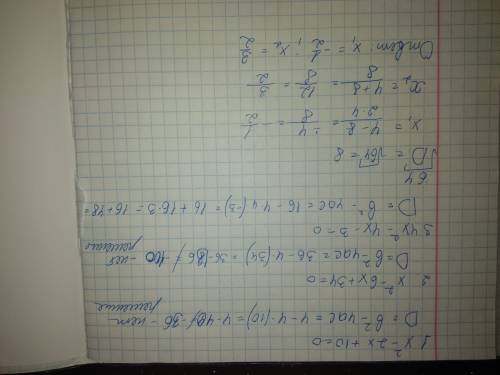 1 x² - 2x + 10 = 0
D = b² - 4ac = 4 - 4·(10) = 4 - 40 = -36 - нет
решение
2 x² - 6x + 34 = 0
D = b² - 4ac = 36 - 4·(34) = 36 - 136 = -100 - нет
решение
3 4x² - 4x - 3 = 0
D = b² - 4ac = 16 - 4·4·(-3) = 16 + 16·3 = 16 + 48 =
64
√D = √64 = 8
x₁ = (4 - 8)/(2·4) = -4/8 = -1/2
x₂ = (4 + 8)/8 = 12/8 = 3/2
Ответ: x₁ = -1/2; x₂ = 3/2